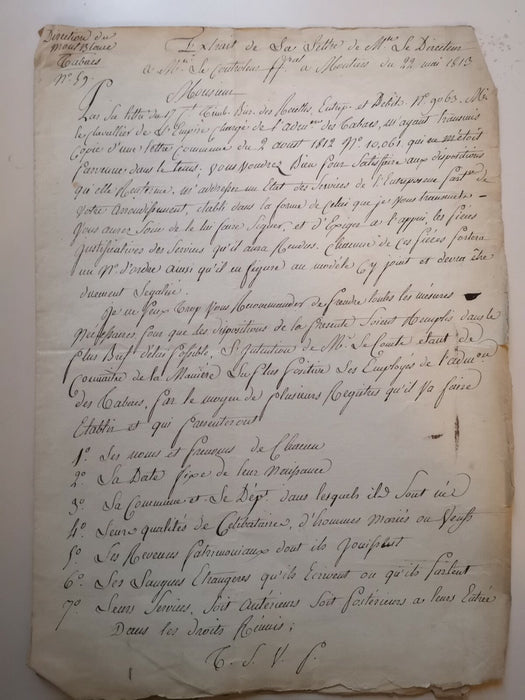 Direction du
mont Blanc
Tabacs
N.° 59.
Extrait de La Lettre de Mr. Le Directeur
a Mr. Le Controleur ppal a Moutiers du 22 mai 1813
Monsieur
Par Sa lettre du 17 Ct. Timb. Bur. des Recettes, Entrep. et Debit. N.° 9063. Mr.
le chevallier de L'Empire Chargé de l'adm.on des Tabacs, m'ayant transmis
Copie d'une lettre Commune du 2 aout 1812 N.° 10,061. qui m'etoit
Parvenue dans le tems. Vous voudrez Bien pour Satisfaire aux dispositions
qu'elle Renferme, m'adresser un Etat des Services de l'Entreposeur Part.er de
Votre arrondissement, établit dans la forme de Celui que je vous transmets
Vous aurez Soin de le lui faire Signer, et d'Exiger a l'appui, les Pièces
Justificatives des Services qu'il aura Rendus. Chacune de ces Pièces Portera
un N.° d'ordre ainsi qu'il en figure au modèle Cy joint et devra être
duement Legalisé.
Je ne Peux trop Vous Recommander de Prendre toutes les mesures
Necessaires, Pour que les dispositions de la Presente Soient Remplis dans le
Plus Bref délai Possible, L'Intention de Mr. Le Comte étant de
Connaitre de la Manière La Plus Positive Les Employés de l'admon
des Tabacs, Par le moyen de Plusieurs Registres qu'il Va faire
Etablir et qui Presenteront
1.° Les noms et Prenoms de Chacun
2.° La Date fixe de leur Naissance
3.° La Commune et Le Dépt. dans lesquels ils Sont né
4.° Leur qualités de Celibataire, d'hommes Mariés ou Veufs
5.° Les Revenus Patrimoniaux dont ils Jouissent
6.° Les Langues Etrangeres qu'ils Ecrivent ou qu'ils Parlent
7.° Leurs Services, Soit Antérieurs Soit Postérieurs a leurs Entrée
Dans les Droits Réunis;
T. S. V. P.